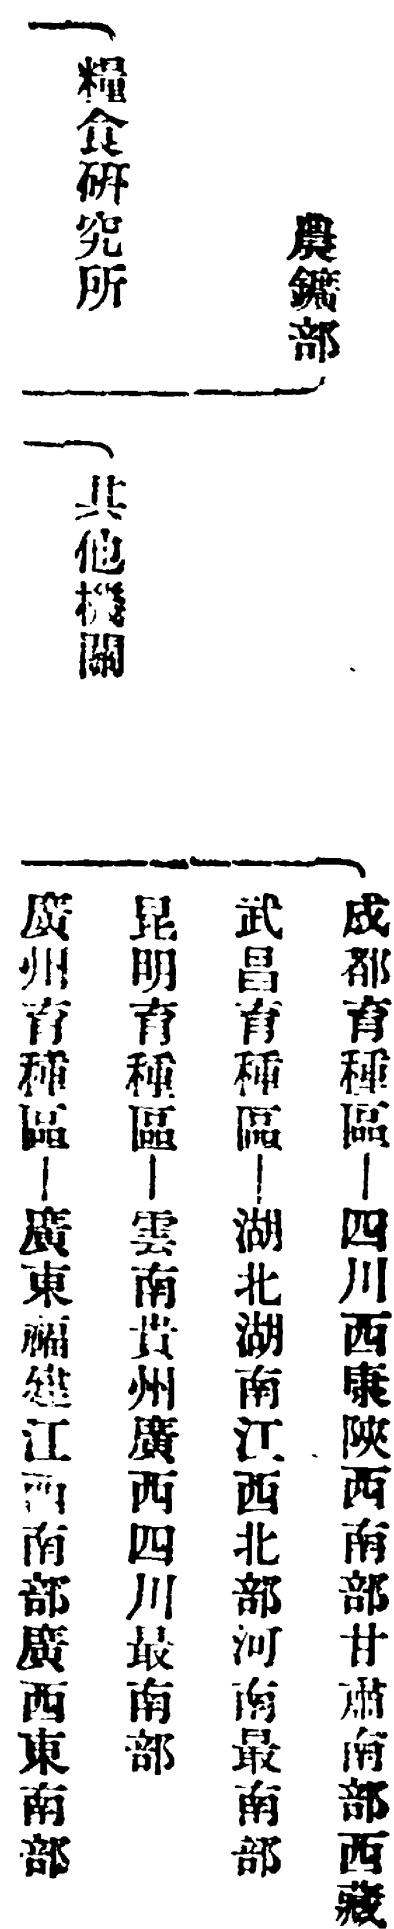 農鑛部
糧食研究所
其他機關
成都育種區—四川西康陝西南部甘肅南部西藏
武昌育種區—湖北湖南江西北部河南最南部
昆明育種區—雲南貴州廣西四川最南部
廣州育種區—廣東福建江西南部廣西東南部